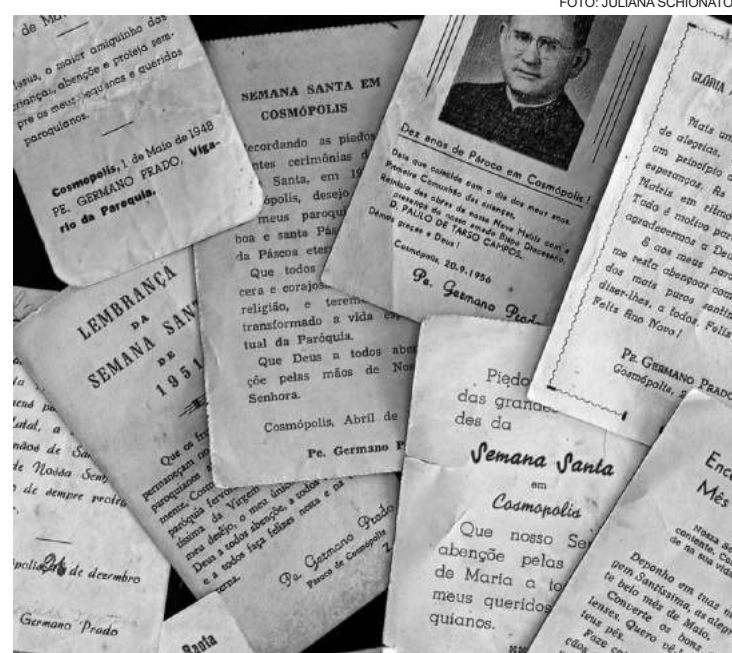 FOTO: JULIANA SCHIONATO
de
Jesus, o maior amiguinho das
crianças, abençõe e proteja sem-
pre os meus pequenos e queridos
paroquianos.
Cosmopolis, 1 de Maio de 1948
PE. GERMANO PRADO, Viga-
rio da Paroquia.
SEMANA SANTA EM
COSMÓPOLIS
ecordando as piedo
ntes cerimônias d
Santa, em 19
ópolis, desejo
meus paroqui
boa e santa Pás
da Páscoa eter
Que todos
cera e corajos
religião, e terem
transformado a vida es
tual da Paróquia.
Que Deus a todos aben
çõe pelas mãos de Nos
Senhora.
Cosmópolis, Abril de
Pe. Germano P
Dez anos de Pároco em Cosmópolis !
Data que coincide com o dia dos meus anos.
Primeira Comunhão das crianças.
Reinício das obras da nossa Nova Matriz com a
presença do nosso amado Bispo Diocesano,
D. PAULO DE TARSO CAMPOS.
Dêmos graças a Deus !
Cosmópolis, 20.9.1956
Pe. Germano Prad
GLÓRIA
Mais um
de alegrias,
um princípio d
esperanças. As
Matriz em ritmo
Tudo é motivo para
agradecermos a Deu
E aos meus paro
me resta abençoar com
dos mais puros senti
dizer-lhes, a todos, Feliz
Feliz Ano Novo !
PE. GERMANO PRADO
Cosmópolis, 2
LEMBRANÇA
DA
SEMANA SAN
DE
1951
Que os fr
permaneçam no
paroquianos
mente, Cos
paróquia fervo
tíssima da Virgem
meu desejo, o meu único
Deus a todos abençõe, a todos
e a todos faça felizes nesta e na
terna.
Pe. Germano Prado
Pároco de Cosmópolis
atal, a
mãos de Sa
de Nossa Senh
o de sempre prote
polis, 24 de dezembro
Germano Prado
Santa
Piedo
das grande
des da
Semana Santa
em
Cosmopolis
Que nosso Se
abençõe pelas
de Maria a to
meus queridos
quianos.
Enc
Mês
Nossa Se
de na sua vida
Deponho em tuas m
gem Santíssima, as alegr
te belo mês de Maio.
Converte os bons
lenses. Quero vê-l
teus pés.
Faze co